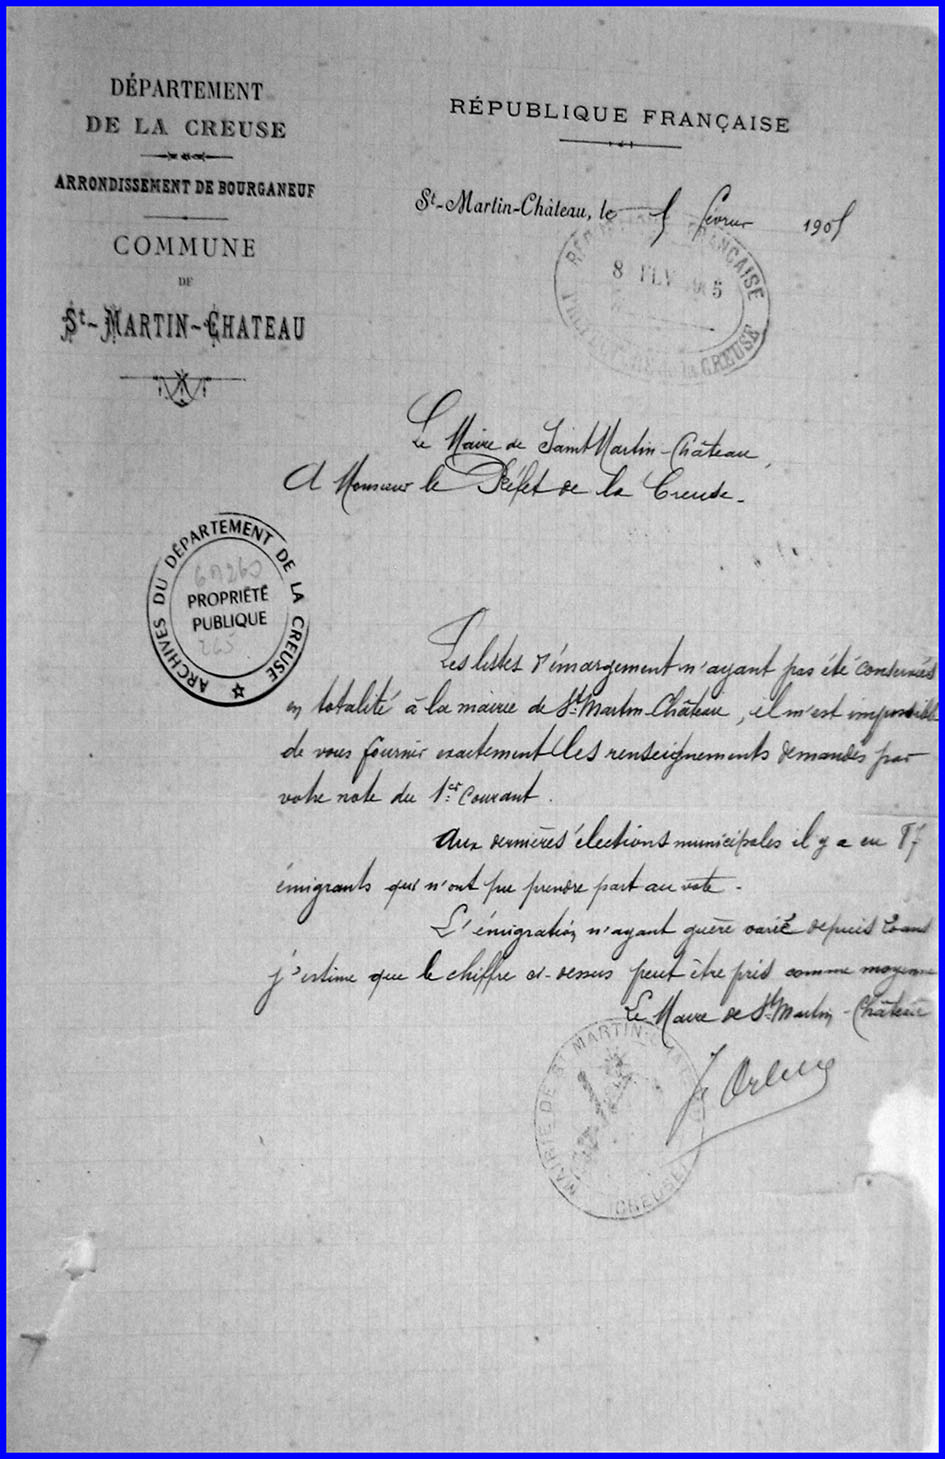 DÉPARTEMENT
DE LA CREUSE
ARRONDISSEMENT DE BOURGANEUF
COMMUNE
DE
St-MARTIN-CHATEAU
RÉPUBLIQUE FRANÇAISE
St-Martin-Château, le 5 février 1905
RÉPUBLIQUE FRANÇAISE
8 FEV 1905
PRÉFECTURE de la CREUSE
Le Maire de Saint Martin-Château,
A Monsieur le Préfet de la Creuse.
ARCHIVES DU DÉPARTEMENT DE LA CREUSE
6M260
PROPRIÉTÉ
PUBLIQUE
265
Les listes d'émargement n'ayant pas été conservées
en totalité à la mairie de St. Martin-Château, il m'est impossible
de vous fournir exactement les renseignements demandés par
votre note du 1er courant.
Aux dernières élections municipales il y a eu 87
émigrants qui n'ont pu prendre part au vote.
L'émigration n'ayant guère varié depuis ans
j'estime que le chiffre ci-dessus peut être pris comme moyenne
Le Maire de St. Martin-Château
MAIRIE DE ST MARTIN-CHATEAU
(CREUSE)